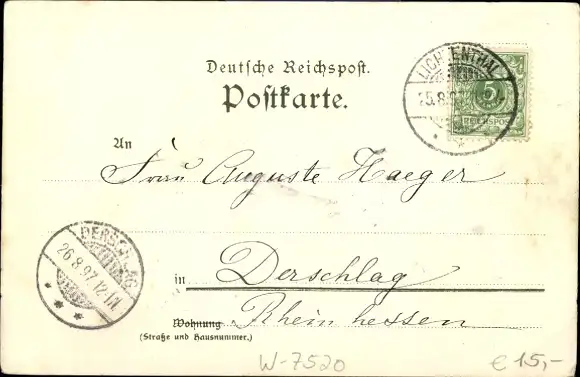 Deutsche Reichspost.
Postkarte.
LICHTENTHAL
25.8.97
5
REICHSPOST
An
Frau Auguste Haeger
DERSCHLAG
26.8.97.12-1N
in Derschlag
Wohnung Rheinhessen
(Straße und Hausnummer.)
W-7520
€ 15,-